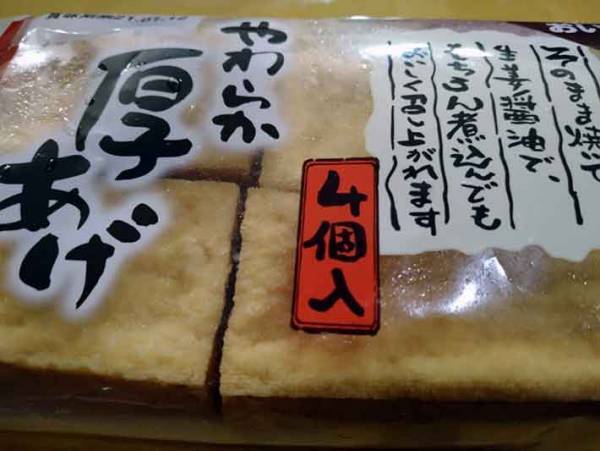 やわらか
厚あげ
4個入
そのまま焼いて
生姜醤油で、
もちろん煮込んでも
おいしく召し上がれます